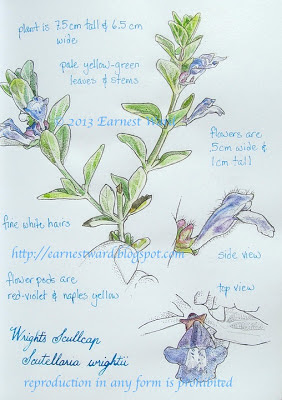 plant is 7.5cm tall & 6.5cm
wide
pale yellow-green
leaves & stems
© 2013 Earnest Ward
flowers are
.5cm wide &
1cm tall
fine white hairs
http://earnestward.blogspot.com
side view
flower pods are
red-violet & naples yellow
top view
Wrights Scullcap
Scutellaria wrightii
reproduction in any form is prohibited